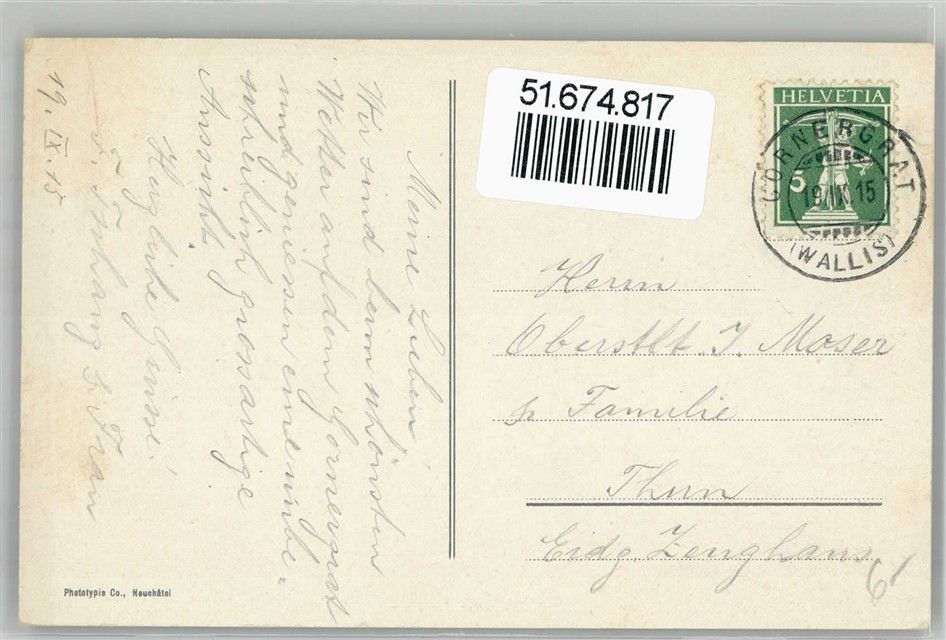 19. IX. 15
Meine Lieben
Wir sind beim schönsten
Wetter auf dem Gornergrat
und geniessen eine unbe-
schreiblich grossartige
Aussicht.
Herzliche Grüsse!
& Frau
Phototypie Co., Neuchâtel
51.674.817
HELVETIA
5
GORNERGRAT
19.IX.15
(WALLIS)
Herrn
Oberstlt. J. Moser
& Familie
Thun
Eidg. Zeughaus